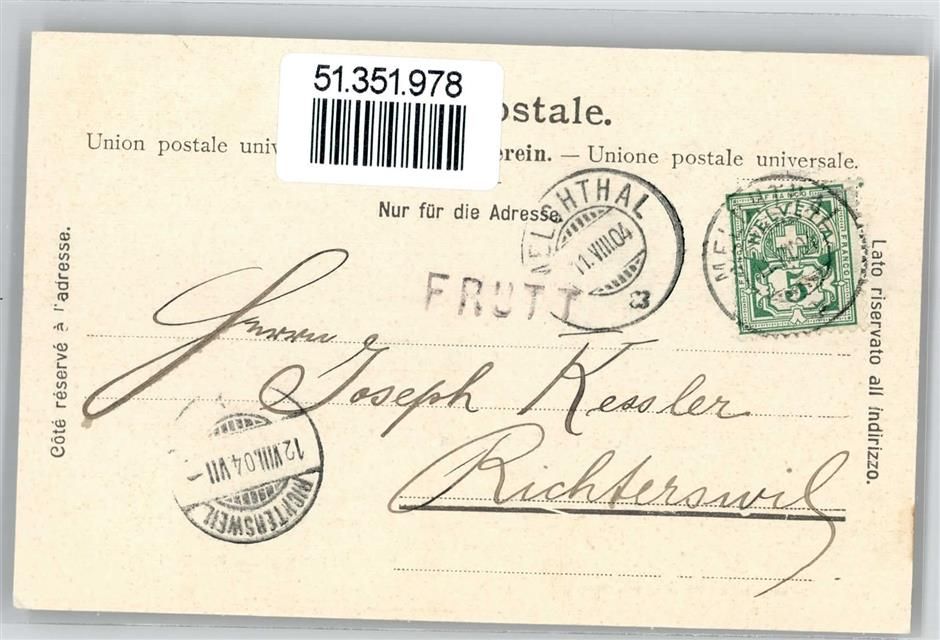 51.351.978
ostale.
Union postale univ erein. — Unione postale universale.
Nur für die Adresse
MELCHTHAL
11.VIII.04
FRUTT
FRANCO
HELVETIA
FRANCO
5
Côté réservé à l'adresse.
Lato riservato all indirizzo.
Herrn
Joseph Kessler
Richterswil
12.VIII.04.VII-
RICHTERSWEIL